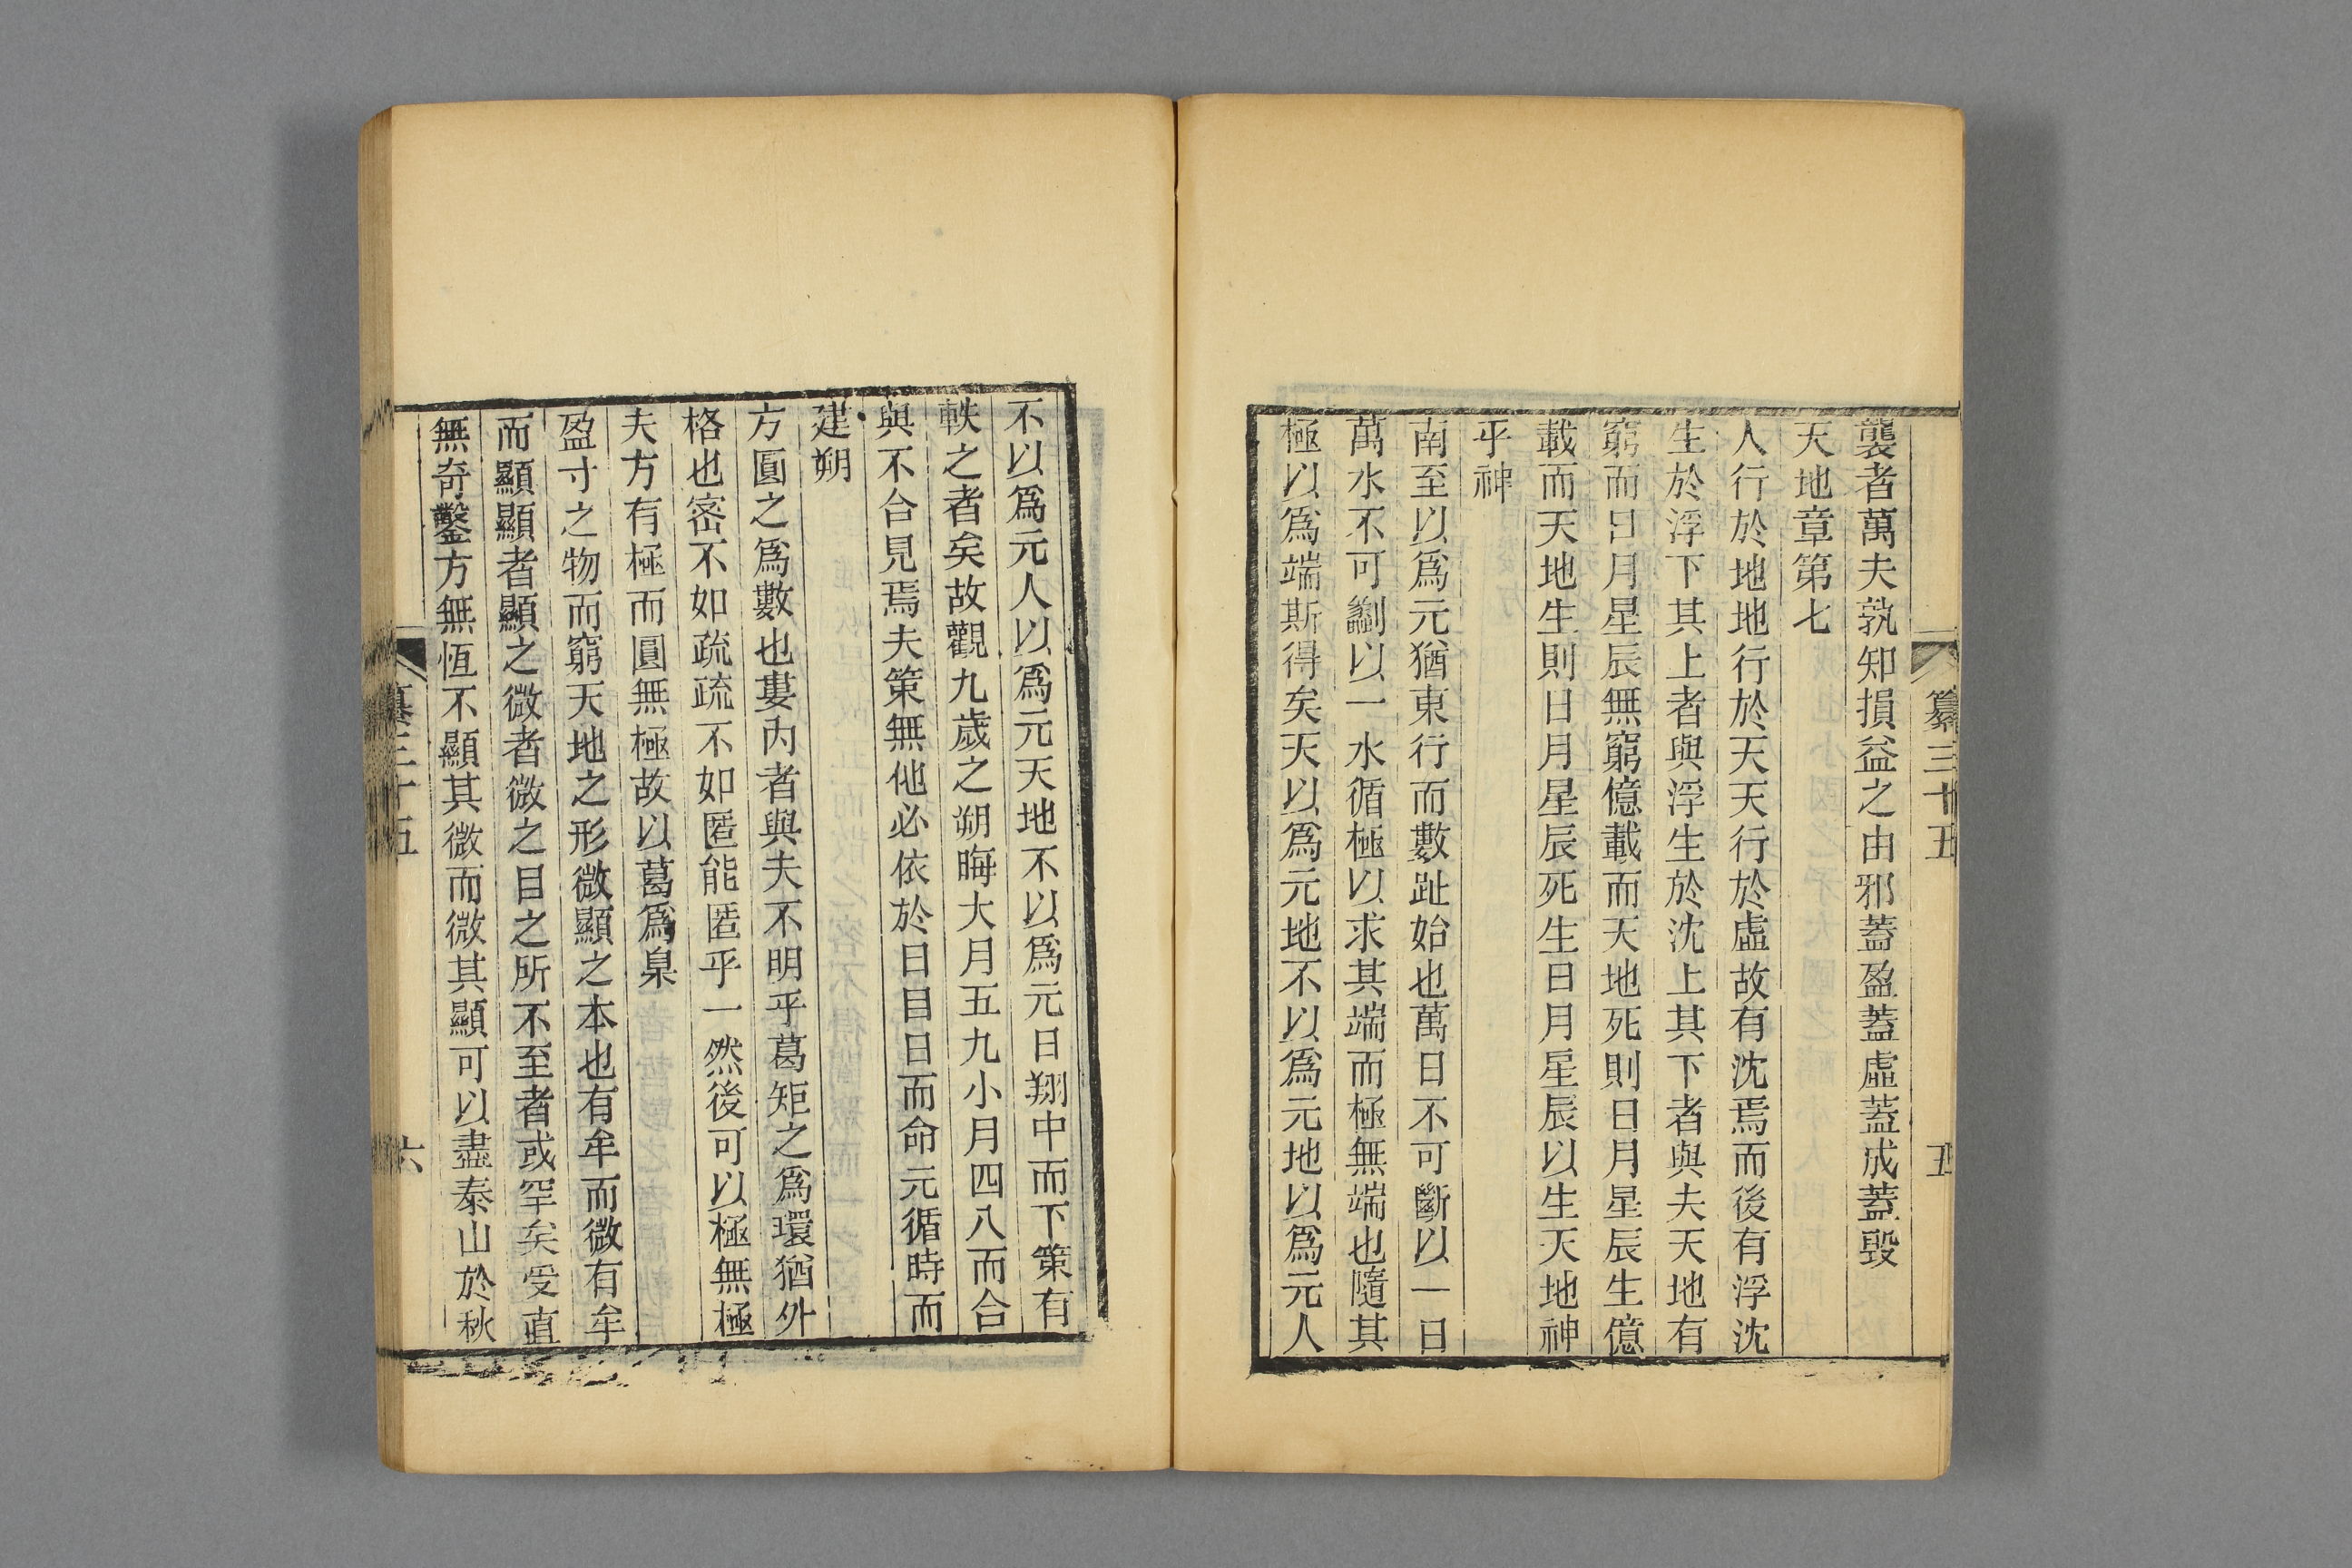 纂三十五
五
襲者萬夫孰知損益之由邪蓋盈蓋虛蓋成蓋毀
天地章第七
人行於地地行於天天行於虛故有沈焉而後有浮沈
生於浮下其上者與浮生於沈上其下者與夫天地有
窮而日月星辰無窮億載而天地死則日月星辰生億
載而天地生則日月星辰死生日月星辰以生天地神
乎神
南至以為元猶東行而數趾始也萬日不可斷以一日
萬水不可劙以一水循極以求其端而極無端也隨其
極以為端斯得矣天以為元地不以為元地以為元人
不以為元人以為元天地不以為元日翔中而下策有
軼之者矣故觀九歲之朔晦大月五九小月四八而合
與不合見焉夫策無他必依於日目日而命元循時而
建朔
方圓之為數也婁內者與夫不明乎葛矩之為環猶外
格也密不如疏疏不如匿能匿乎一然後可以極無極
夫方有極而圓無極故以葛為臬
盈寸之物而窮天地之形微顯之本也有牟而微有牟
而顯顯者顯之微者微之目之所不至者或罕矣受直
無奇鑿方無恆不顯其微而微其顯可以盡泰山於秋
纂三十五
六